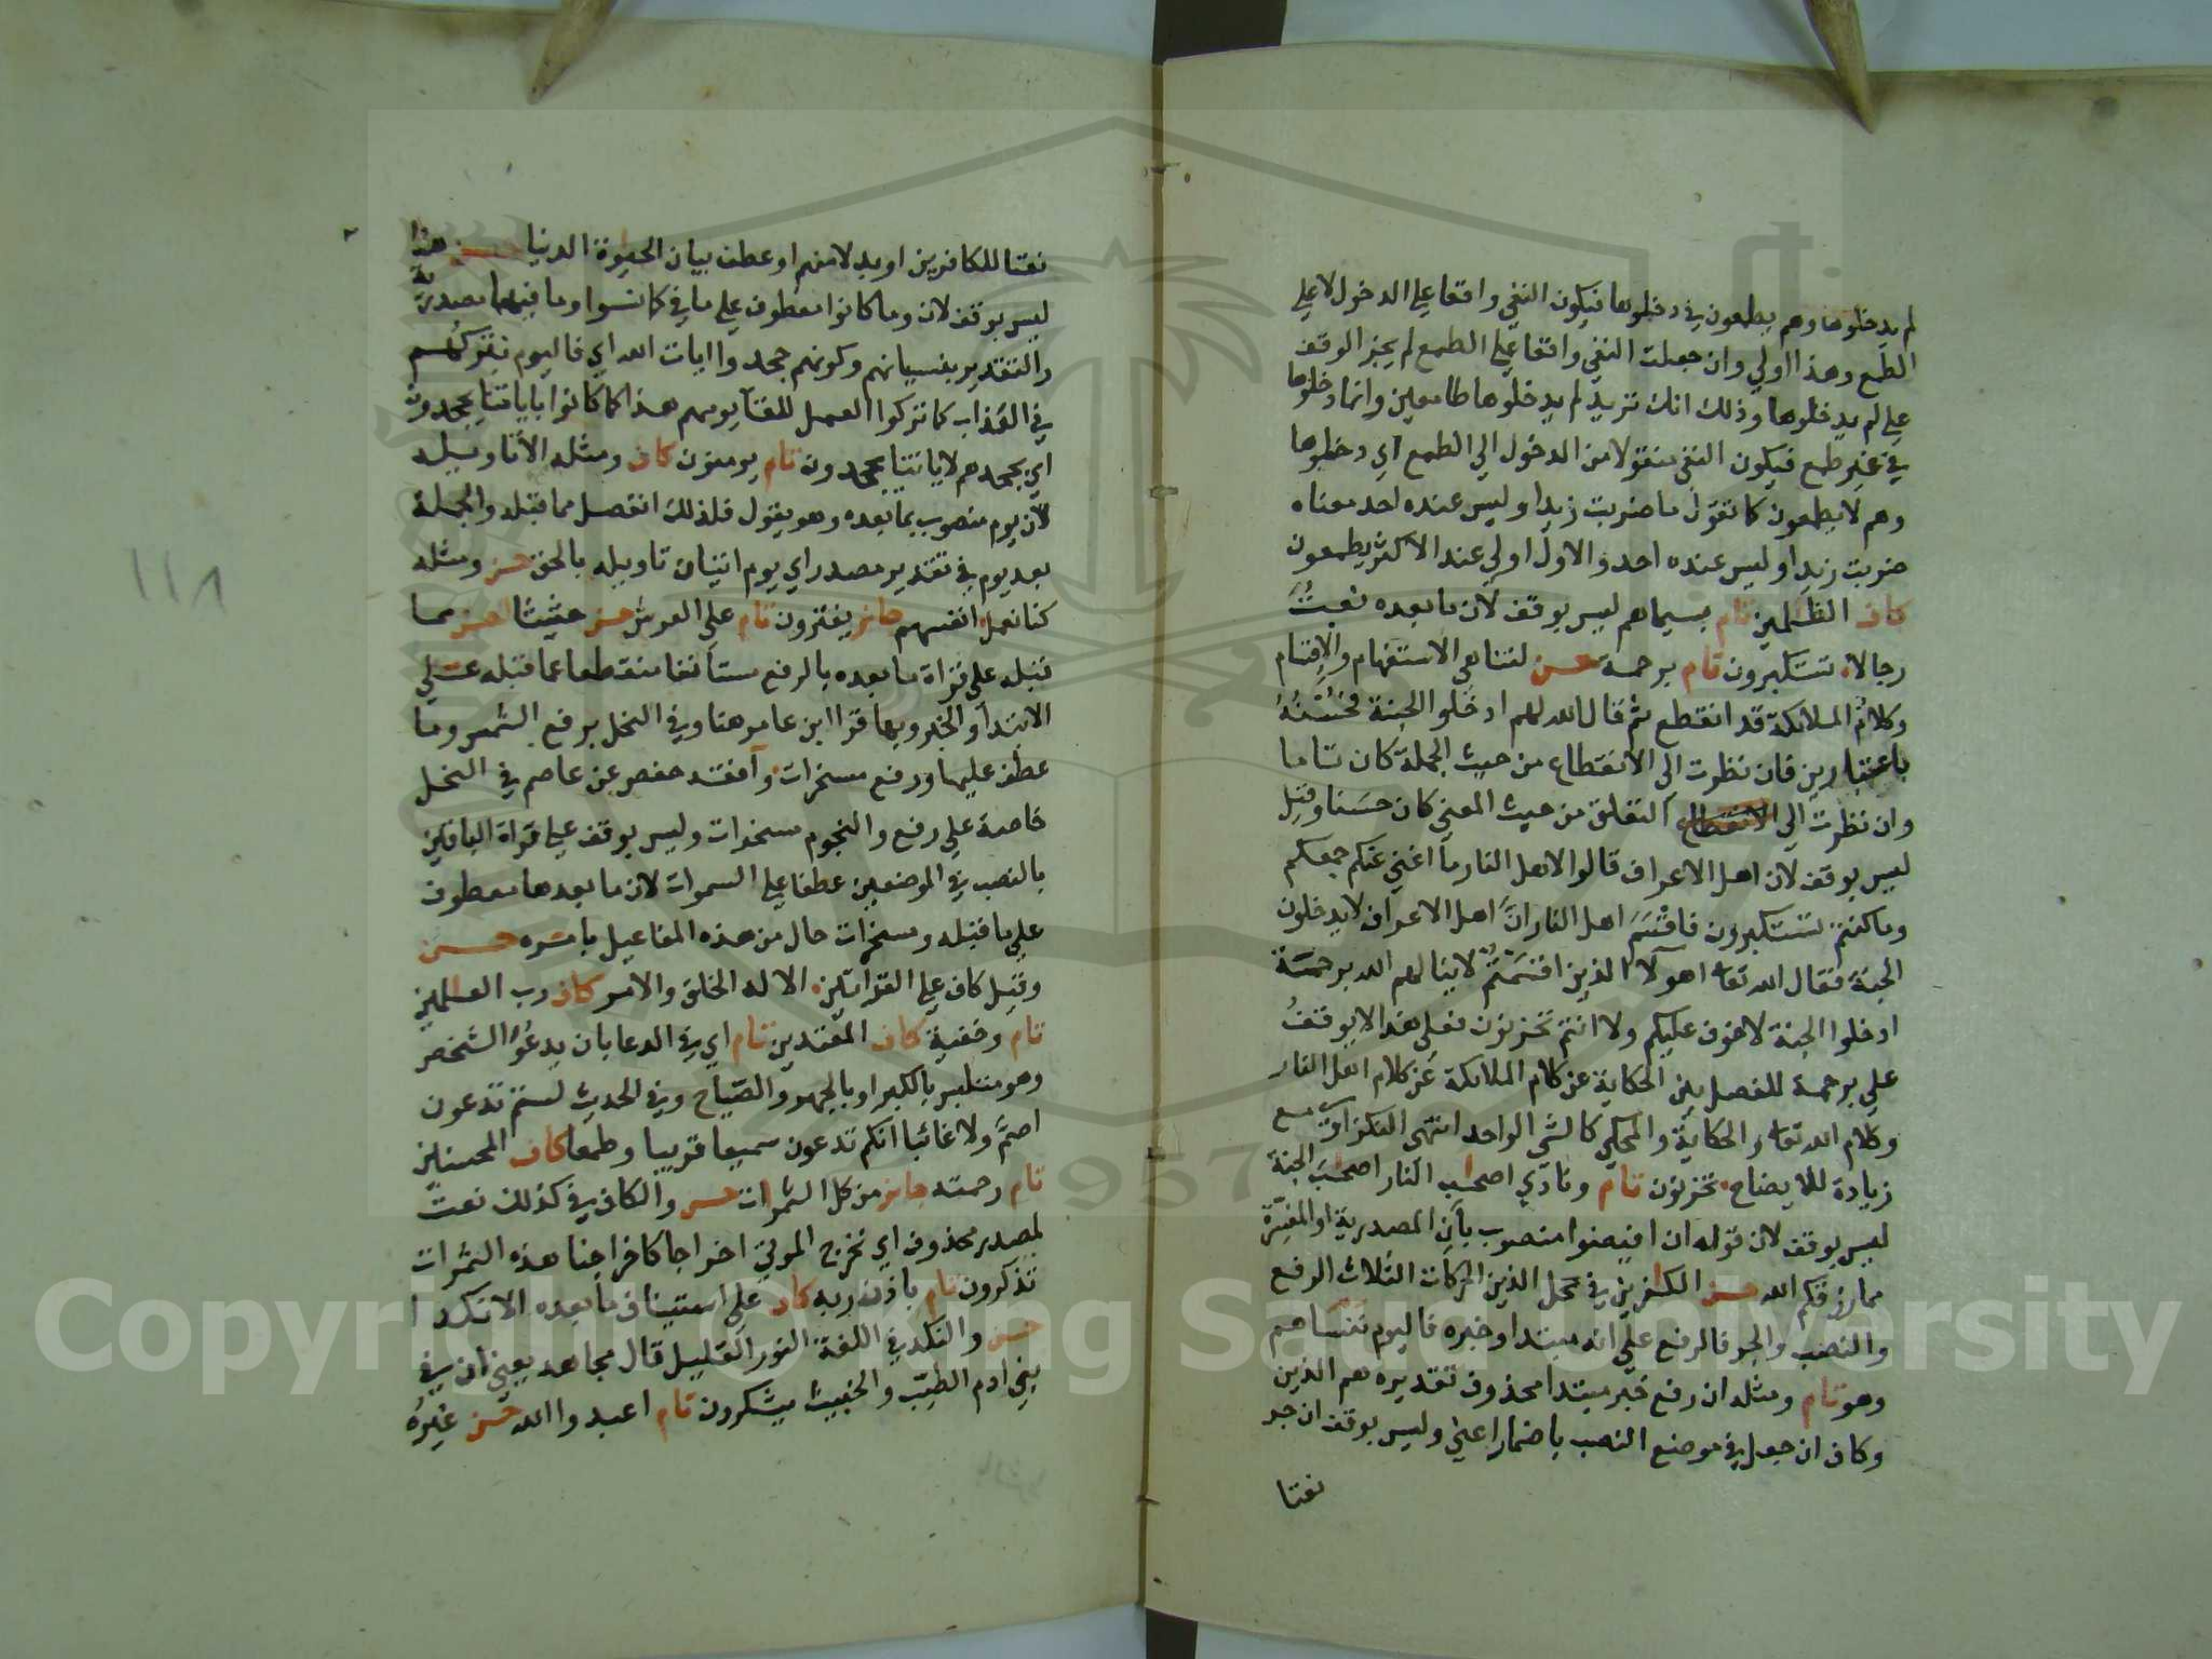 لم يدخلوها وهم يطمعون في دخولها فيكون النفي واقعا على الدخول لا على
الطمع وهذا اولي وان جعلت النفي واقعا على الطمع لم يجز الوقف
على لم يدخلوها وذلك انك تريد لم يدخلوها طامعين وانما دخلوها
في غير طمع فيكون النفي منقولا من الدخول الي الطمع اي دخلوها
وهم لا يطمعون كما تقول ما ضربت زيدا وليس عنده احد معناه
ضربت زيدا وليس عنده احد والاول اولي عند الاكثر يطمعون
كاف الظلمين تام بسيماهم ليس بوقف لان ما بعده نعت
رجالا تستكبرون تام برحمة حسن لتناهي الاستفهام والاقسام
وكلام الملائكة قد انقطع ثم قال الله لهم ادخلوا الجنة فحسنه
باعتبارين فان نظرت الى الانقطاع من حيث الجملة كان تاما
وان نظرت الي التعلق من حيث المعني كان حسنا وقيل
ليس بوقف لان اهل الاعراف قالوا لاهل النار ما اغني عنكم جمعكم
وما كنتم تستكبرون فاقسم اهل النار ان اهل الاعراف لا يدخلون
الجنة فقال الله تعا اهولآء الذين اقسمتم لا ينالهم الله برحمة
ادخلوا الجنة لا خوف عليكم ولا انتم تحزنون فعلى هذا لا يوقف
على برحمة للفصل بين الحكاية عن كلام الملائكة عن كلام اهل النار
وكلام الله تعا والحكاية والمحكي كالشي الواحد انتهى النكزاوي مع
زيادة للايضاح تحزنون تام ونادي اصحب النار اصحب الجنة
ليس بوقف لان قوله ان افيضوا منصوب بان المصدرية او المفسرة
مما رزقكم الله حسن الكفرين في محل الذين الحركات الثلاث الرفع
والنصب والجر فالرفع على انه مبتدا وخبره فاليوم ننساهم
وهو تام ومثله ان رفع خبر مبتدا محذوف تقديره هم الذين
وكاف ان جعل في موضع النصب باضمار اعني وليس بوقف ان جر
نعتا
نعتا للكافرين او بدلا منهم او عطف بيان الحيوة الدنيا حسن هذا
ليس بوقف لان وما كانوا معطوف على ما في كما نسوا وما فيهما مصدرية
والتقدير بنسيانهم وكونهم جحدوا ايات الله اي فاليوم نتركهم
في العذاب كما تركوا العمل للقآء يومهم هذا كما كانوا باياتنا يجحدون
اي بجحدهم لاياتنا يجحدون تام يومنون كاف ومثله الا تاويله
لان يوم منصوب بما بعده وهو يقول فلذلك انفصل مما قبله والجملة
بعد يوم في تقدير مصدر اي يوم اتيان تاويله بالحق حسن ومثله
كنا نعمل انفسهم جائز يفترون تام على العرش حسن حثيثا احسن مما
قبله على قراة ما بعده بالرفع مستانفا منقطعا عما قبله على
الابتدآ والخبر وبها قرا ابن عامر هنا وفي النحل برفع الشمس وما
عطف عليها ورفع مسخرات وآفقه حفص عن عاصم في النحل
خاصة على رفع والنجوم مسخرات وليس بوقف على قراة الباقين
بالنصب في الموضعين عطفا على السموات لان ما بعدها معطوف
على ما قبله ومسخرات حال من هذه المفاعيل بامره حسن
وقيل كاف على القراتين الا له الخلق والامر كاف رب العلمين
تام وخفية كاف المعتدين تام اي في الدعا بان يدعو الشخص
وهو متلبس بالكبر او بالجهر والصياح وفي الحديث لستم تدعون
اصم ولا غائبا انكم تدعون سميعا قريبا وطمعا كاف المحسنين
تام رحمته جائز من كل الثمرات حسن والكاف في كذلك نعت
لمصدر محذوف اي نخرج الموتي اخراجا كاخراجنا هذه الثمرات
تذكرون تام باذن ربه كاف على استيناف ما بعده الا نكدا
حسن والنكد في اللغة النزر القليل قال مجاهد يعني ان في
بني ادم الطيب والخبيث يشكرون تام اعبدوا الله حسن غيره
١١٨
Copyright © King Saud University
1957